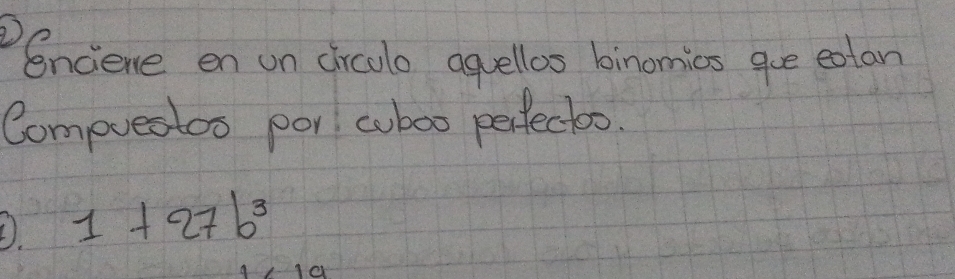 ② Encierre en un círculo aquellos binomios que estan
Compuestos por cubos perfectos.
1 + 27b³